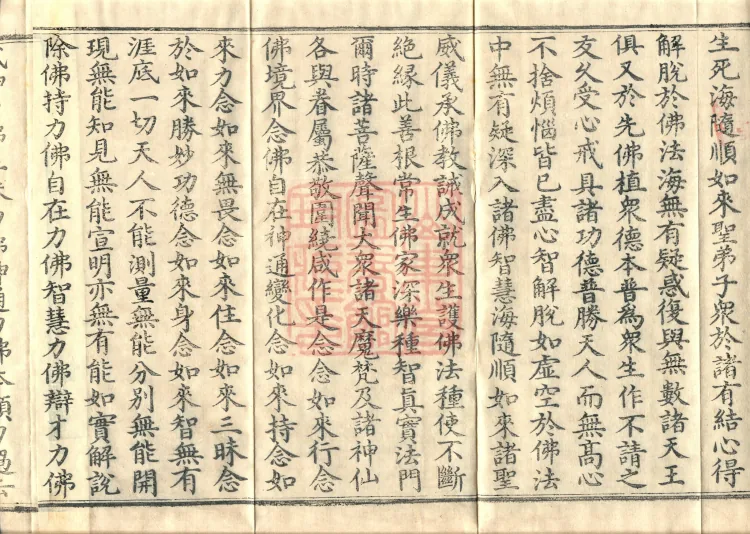 生死海隨順如來聖弟子衆於諸有結心得
解脫於佛法海無有疑惑復與無數諸天王
俱又於先佛植衆德本普為衆生作不請之
友久受心戒具諸功德普勝天人而無高心
不捨煩惱皆已盡心智解脫如虛空於佛法
中無有疑深入諸佛智慧海隨順如來諸聖
威儀承佛教誡成就衆生護佛法種使不斷
絶緣此善根常生佛家深樂種智真實法門
爾時諸菩薩聲聞大衆諸天魔梵及諸神仙
各與眷屬恭敬圍繞咸作是念念如來行念
佛境界念佛自在神通變化念如來持念如
來力念如來無畏念如來住念如來三昧念
於如來勝妙功德念如來身念如來智無有
涯底一切天人不能測量無能分別無能開
現無能知見無能宣明亦無有能如實解說
除佛持力佛自在力佛智慧力佛辯才力佛